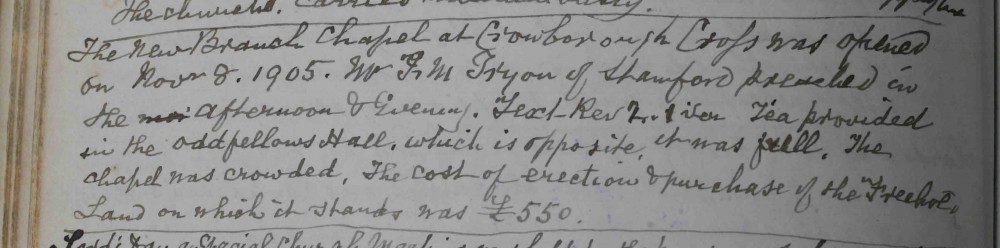 The church. Carried
The New Branch Chapel at Crowborough Cross was opened
on Novr 8. 1905. Mr F. M Tryon of Stamford preached in
the afternoon & Evening. Text Rev Tea provided
in the oddfellows Hall, which is opposite, it was full. The
chapel was crowded, The cost of erection & purchase of the Freehol
Land on which it stands was £550.